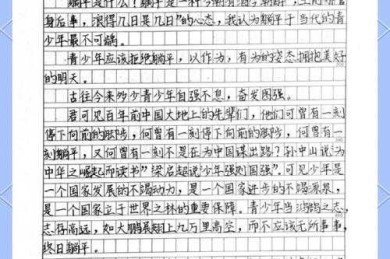 躺平是什么？躺平是一种今朝有酒今朝醉，
身后事，浪得几日是几日”的心态，我认为躺平于当代的青
少年最不可端。
青少年应该拒绝躺平，以作为，有为的姿态拥抱美好
的明天。
古往今来多少青少年自强不息，奋发图强。
君可见百年前中国大地上的先辈们，他们可曾有一刻
停下向前的脚步，何曾有一刻停下向前的脚步，何曾有一
刻躺平，又何曾有一刻不是在为中国谋出路？孙中山说“为
中华之崛起而读书”梁启超说“少年强则国强”。可见少年是
一个国家发展的不竭动力，是一个国家进步的不竭源泉，
是一个国家立于世界之林的重要保障。青少年当鸿鹄之志，
志存高远，如大鹏展翅上九万里高空，而不应该无所事事，
终日躺平。